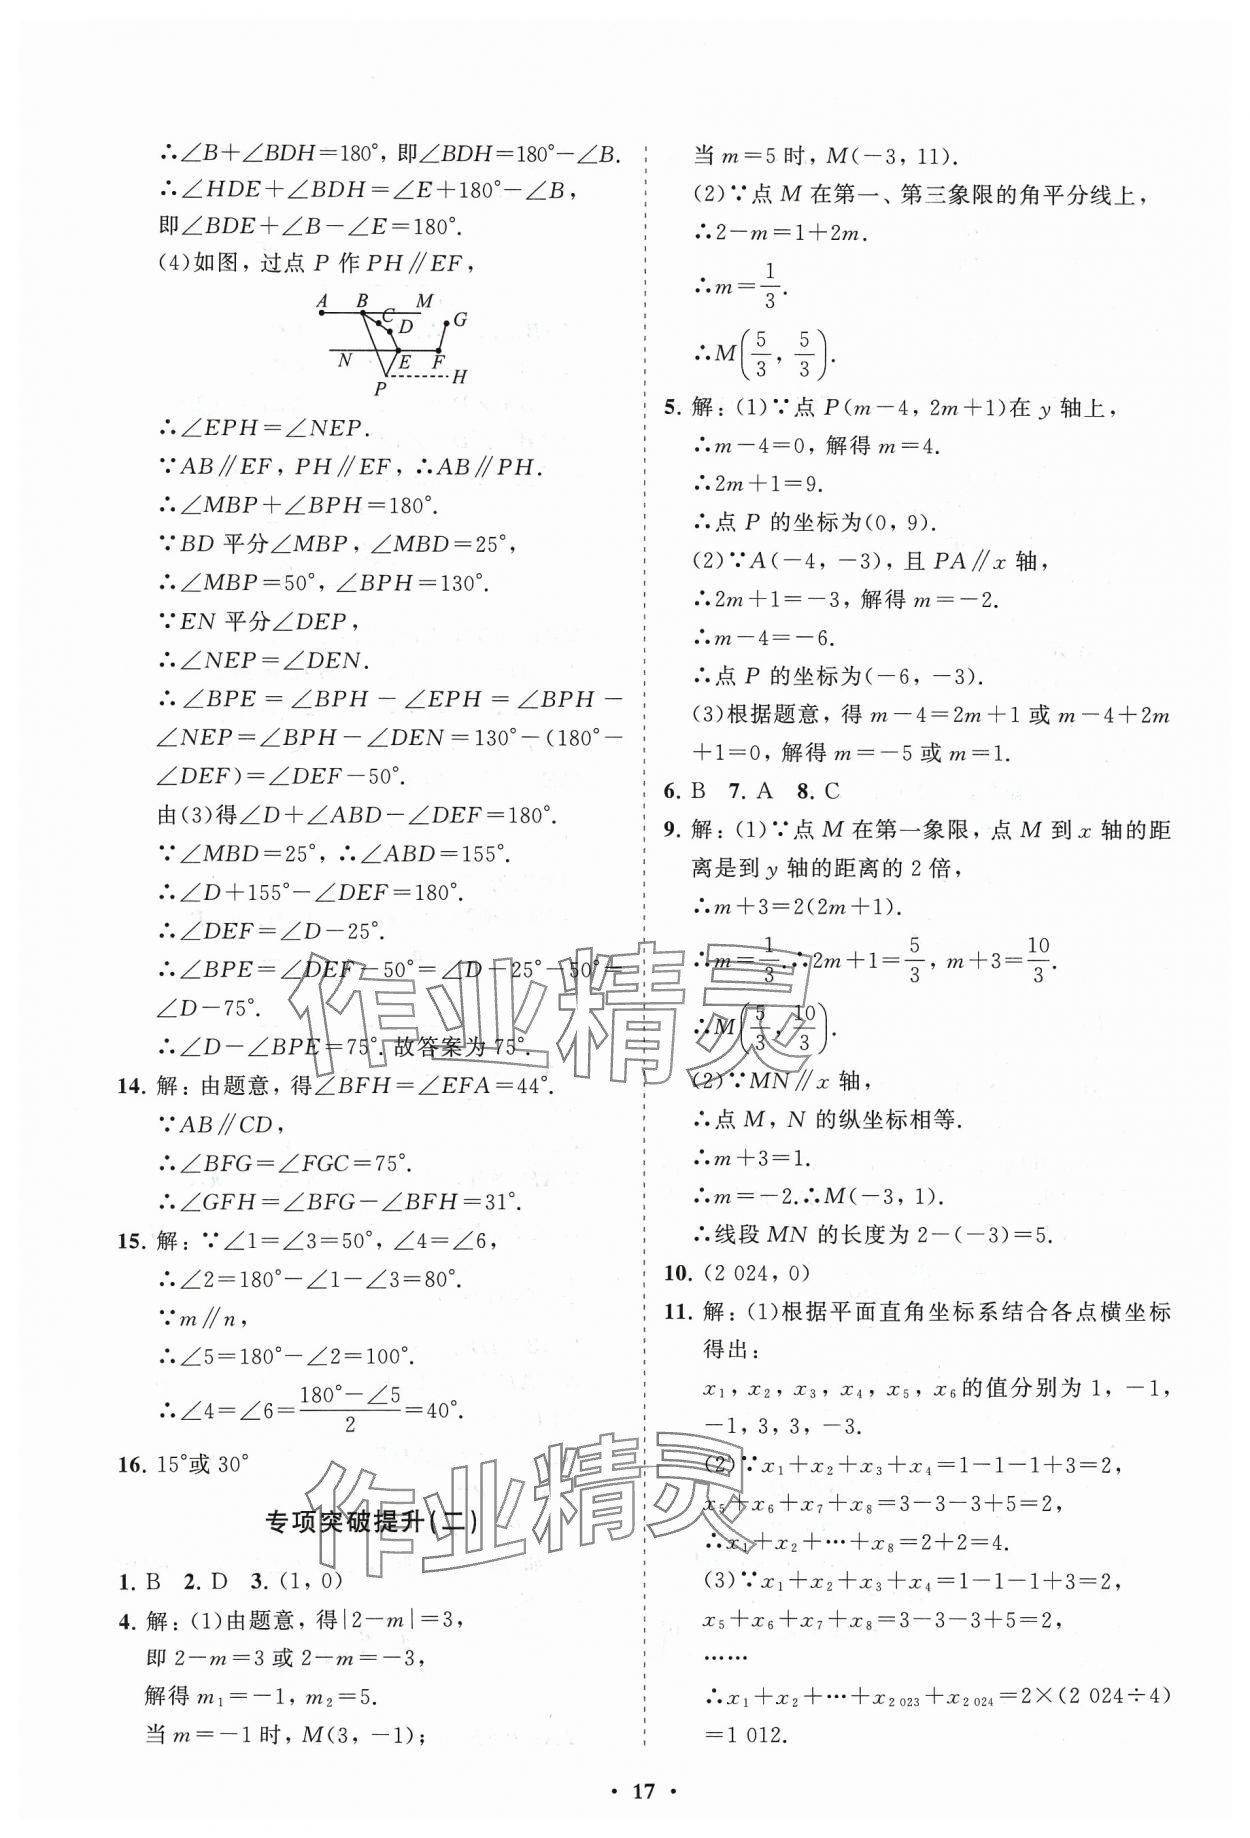 ∴∠B+∠BDH=180°,即∠BDH=180°-∠B.
∴∠HDE+∠BDH=∠E+180°-∠B,
即∠BDE+∠B-∠E=180°.
(4)如图,过点 P 作 PH∥EF,
A B C D M G
N E F
P H
∴∠EPH=∠NEP.
∵AB∥EF, PH∥EF, ∴AB∥PH.
∴∠MBP+∠BPH=180°.
∵BD 平分∠MBP, ∠MBD=25°,
∴∠MBP=50°, ∠BPH=130°.
∵EN 平分∠DEP,
∴∠NEP=∠DEN.
∴∠BPE=∠BPH-∠EPH=∠BPH-
∠NEP=∠BPH-∠DEN=130°-(180°-
∠DEF)=∠DEF-50°.
由(3)得∠D+∠ABD-∠DEF=180°.
∵∠MBD=25°, ∴∠ABD=155°.
∴∠D+155°-∠DEF=180°.
∴∠DEF=∠D-25°.
∴∠BPE=∠DEF-50°=∠D-25°-50°=
∠D-75°.
∴∠D-∠BPE=75°. 故答案为 75°.
14. 解:由题意,得∠BFH=∠EFA=44°.
∵AB∥CD,
∴∠BFG=∠FGC=75°.
∴∠GFH=∠BFG-∠BFH=31°.
15. 解:∵∠1=∠3=50°, ∠4=∠6,
∴∠2=180°-∠1-∠3=80°.
∵m∥n,
∴∠5=180°-∠2=100°.
∴∠4=∠6=(180°-∠5)/2=40°.
16. 15°或 30°
专项突破提升(二)
1. B 2. D 3. (1, 0)
4. 解:(1)由题意,得|2-m|=3,
即 2-m=3 或 2-m=-3,
解得 m₁=-1, m₂=5.
当 m=-1 时, M(3, -1);
当 m=5 时, M(-3, 11).
(2)∵点 M 在第一、第三象限的角平分线上,
∴2-m=1+2m.
∴m=1/3.
∴M(5/3, 5/3).
5. 解:(1)∵点 P(m-4, 2m+1)在 y 轴上,
∴m-4=0, 解得 m=4.
∴2m+1=9.
∴点 P 的坐标为(0, 9).
(2)∵A(-4, -3), 且 PA∥x 轴,
∴2m+1=-3, 解得 m=-2.
∴m-4=-6.
∴点 P 的坐标为(-6, -3).
(3)根据题意,得 m-4=2m+1 或 m-4+2m
+1=0, 解得 m=-5 或 m=1.
6. B 7. A 8. C
9. 解:(1)∵点 M 在第一象限,点 M 到 x 轴的距
离是到 y 轴的距离的 2 倍,
∴m+3=2(2m+1).
∴m=1/3.∴2m+1=5/3, m+3=10/3.
∴M(5/3, 10/3).
(2)∵MN∥x 轴,
∴点 M, N 的纵坐标相等.
∴m+3=1.
∴m=-2.∴M(-3, 1).
∴线段 MN 的长度为 2-(-3)=5.
10. (2 024, 0)
11. 解:(1)根据平面直角坐标系结合各点横坐标
得出:
x₁, x₂, x₃, x₄, x₅, x₆的值分别为 1, -1,
-1, 3, 3, -3.
(2)∵x₁+x₂+x₃+x₄=1-1-1+3=2,
x₅+x₆+x₇+x₈=3-3-3+5=2,
∴x₁+x₂+⋯+x₈=2+2=4.
(3)∵x₁+x₂+x₃+x₄=1-1-1+3=2,
x₅+x₆+x₇+x₈=3-3-3+5=2,
……
∴x₁+x₂+⋯+x₂ ₀₂₃+x₂ ₀₂₄=2×(2 024÷4)
=1 012.
作业精灵
作业精灵
· 17 ·